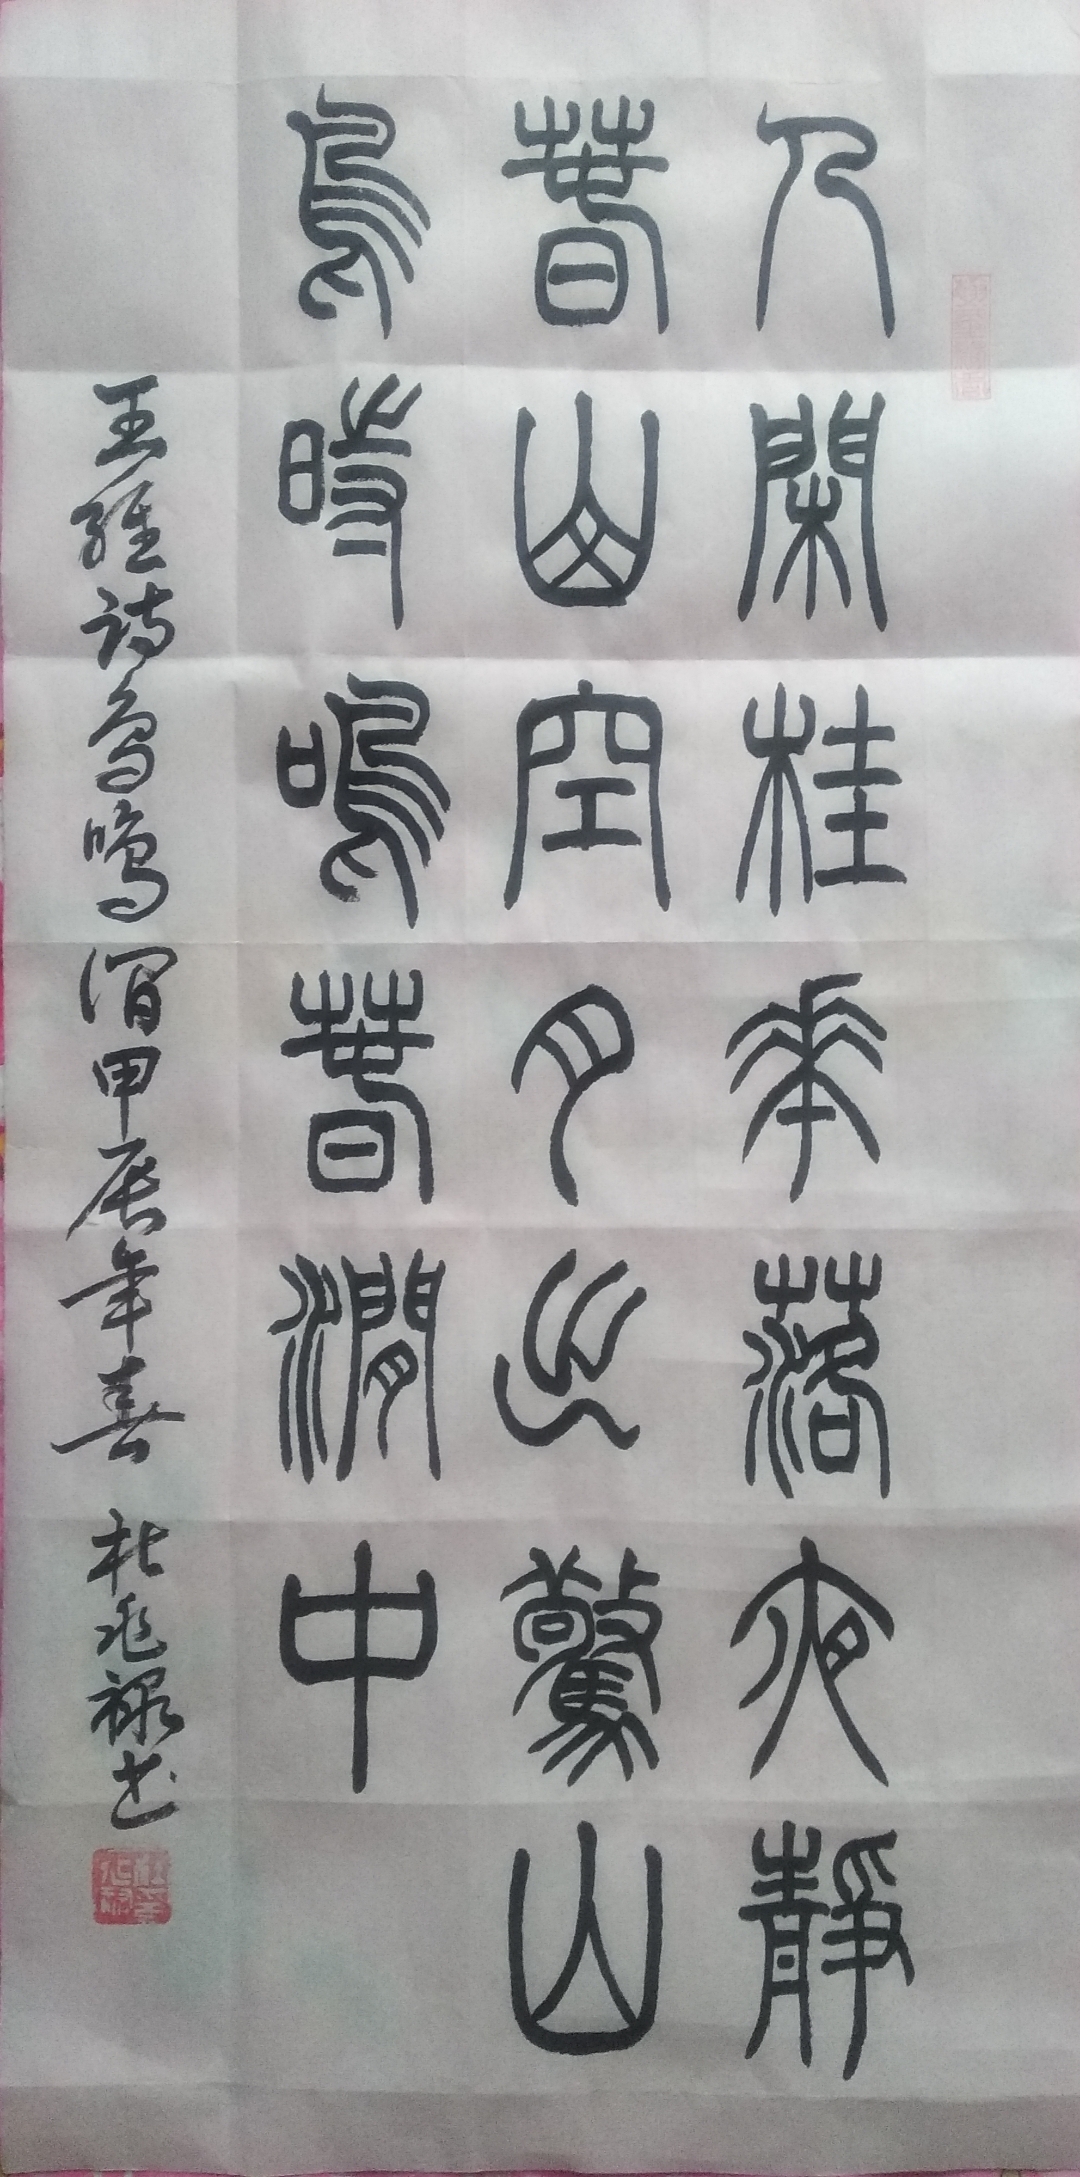 人閑桂花落夜靜
春山空月出驚山
鳥時鳴春澗中
王維詩鳥鳴澗甲辰年春 杜兆祿书